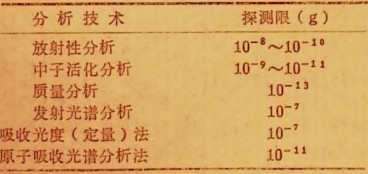 分析技术 探测限(g)
放射性分析 10⁻⁸～10⁻¹⁰
中子活化分析 10⁻⁹～10⁻¹¹
质量分析 10⁻¹³
发射光谱分析 10⁻⁷
吸收光度(定量)法 10⁻⁷
原子吸收光谱分析法 10⁻¹¹